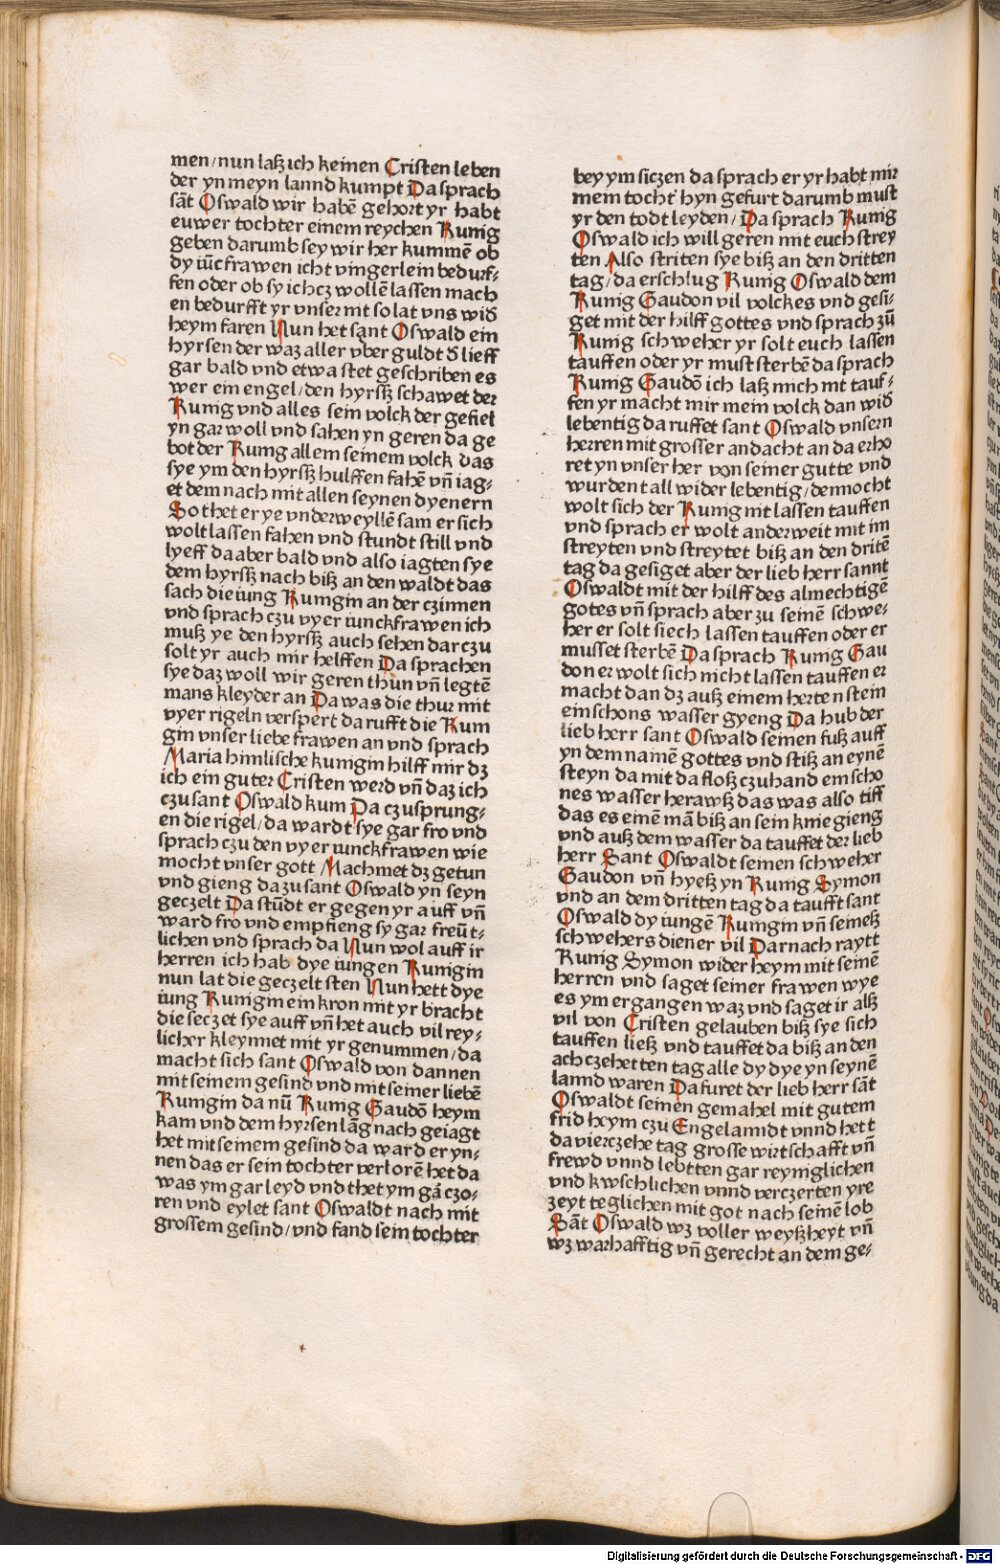 men/nun laß ich keinen Cristen leben
der yn meyn lannd kumpt Da sprach
sāt Oswald wir habē gehort yr habt
euwer tochter einem reychen Kunig
geben darumb sey wir her kummē ob
dy iūcfrawen icht vingerlein bedurf-
fen oder ob sy ichcz wollē lassen mach
en bedurfft yr vnser nit so lat vns wid̄
heym faren Nun het sant Oswald ein
hyrsen der waz aller vber guldt d̄ lieff
gar bald vnd etwa stet geschriben es
wer ein engel/den hyrssz schawet der
Kunig vnd alles sein volck der gefiel
yn gar woll vnd sahen yn geren da ge
bot der Kunig allem seinem volck das
sye ym den hyrssz hulffen fahē vn̄ iag-
et dem nach mit allen seynen dyenern
So thet er ye vnderweyllē sam er sich
wolt lassen fahen vnd stundt still vnd
lyeff da aber bald vnd also iagten sye
dem hyrssz nach biß an den waldt das
sach die iung Kunigin an der czinnen
vnd sprach czu vyer iunckfrawen ich
muß ye den hyrssz auch sehen dar czu
solt yr auch mir helffen Da sprachen
sye daz woll wir geren thun vn̄ legtē
mans kleyder an Da was die thur mit
vyer rigeln verspert da rufft die Kuni
gin vnser liebe frawen an vnd sprach
Maria himlische kunigin hilff mir dz
ich ein guter Cristen werd vn̄ daz ich
czu sant Oswald kum Da czusprung-
en die rigel/da wardt sye gar fro vnd
sprach czu den vyer iunckfrawen wie
mocht vnser gott Machmet dz getun
vnd gieng da zu sant Oswald yn seyn
geczelt Da stūdt er gegen yr auff vn̄
ward fro vnd empfieng sy gar freūt-
lichen vnd sprach da Nun wol auff ir
herren ich hab dye iungen Kunigin
nun lat die geczelt sten Nun hett dye
iung Kunigin ein kron mit yr bracht
die seczet sye auff vn̄ het auch vil rey-
licher kleynnet mit yr genummen/da
macht sich sant Oswald von dannen
mit seinem gesind vnd mit seiner liebē
Kunigin da nū Kunig Gaudō heym
kam vnd dem hyrsen lāg nach geiagt
het mit seinem gesind da ward er yn-
nen das er sein tochter verlorē het da
was ym gar leyd vnd thet ym gā czo-
ren vnd eylet sant Oswaldt nach mit
grossem gesind/vnd fand sein tochter
bey ym siczen da sprach er yr habt mir
mein tocht' hyn gefurt darumb must
yr den todt leyden/Da sprach Kunig
Oswald ich will geren mit euch strey
ten Also striten sye biß an den dritten
tag/da erschlug Kunig Oswald dem
Kunig Gaudon vil volckes vnd gesi-
get mit der hilff gottes vnd sprach zū
Kunig schweher yr solt euch lassen
tauffen oder yr must sterbē da sprach
Kunig Gaudō ich laß mich nit tauf-
fen yr macht mir mein volck dan wid̄
lebentig da ruffet sant Oswald vnsern
herren mit grosser andacht an da erho
ret yn vnser her von seiner gutte vnd
wurdent all wider lebentig/dennocht
wolt sich der Kunig nit lassen tauffen
vnd sprach er wolt anderweit mit im
streyten vnd streytet biß an den dritē
tag da gesiget aber der lieb herr sannt
Oswaldt mit der hilff des almechtigē
gotes vn̄ sprach aber zu seinē schwe-
her er solt siech lassen tauffen oder er
musset sterbē Da sprach Kunig Gau
don er wolt sich nicht lassen tauffen er
macht dan dz auß einem herten stein
ein schons wasser gyeng Da hub der
lieb herr sant Oswald seinen fuß auff
yn dem namē gottes vnd stiß an eynē
steyn da mit da floß czuhand ein scho
nes wasser herawß das was also tiff
das es einē mā biß an sein knie gieng
vnd auß dem wasser da tauffet der lieb
herr Sant Oswaldt seinen schweher
Gaudon vn̄ hyeß yn Kunig Symon
vnd an dem dritten tag da taufft sant
Oswald dy iungē Kunigin vn̄ seineß
schwehers diener vil Darnach raytt
Kunig Symon wider heym mit seinē
herren vnd saget seiner frawen wye
es ym ergangen waz vnd saget ir alß
vil von Cristen gelauben biß sye sich
tauffen ließ vnd tauffet da biß an den
achczehetten tag alle dy dye yn seynē
lannd waren Da furet der lieb herr sāt
Oswaldt seinen gemahel mit gutem
frid heym czu Engelanndt vnnd hett
da vierczehe tag grosse wirtschafft vn̄
frewd vnnd lebtten gar reyniglichen
vnd kwschlichen vnnd verczerten yre
zeyt teglichen mit got nach seinē lob
Sāt Oswald wz voller weyßheyt vn̄
wz warhafftig vn̄ gerecht an dem ge-
Digitalisierung gefördert durch die Deutsche Forschungsgemeinschaft - DFG